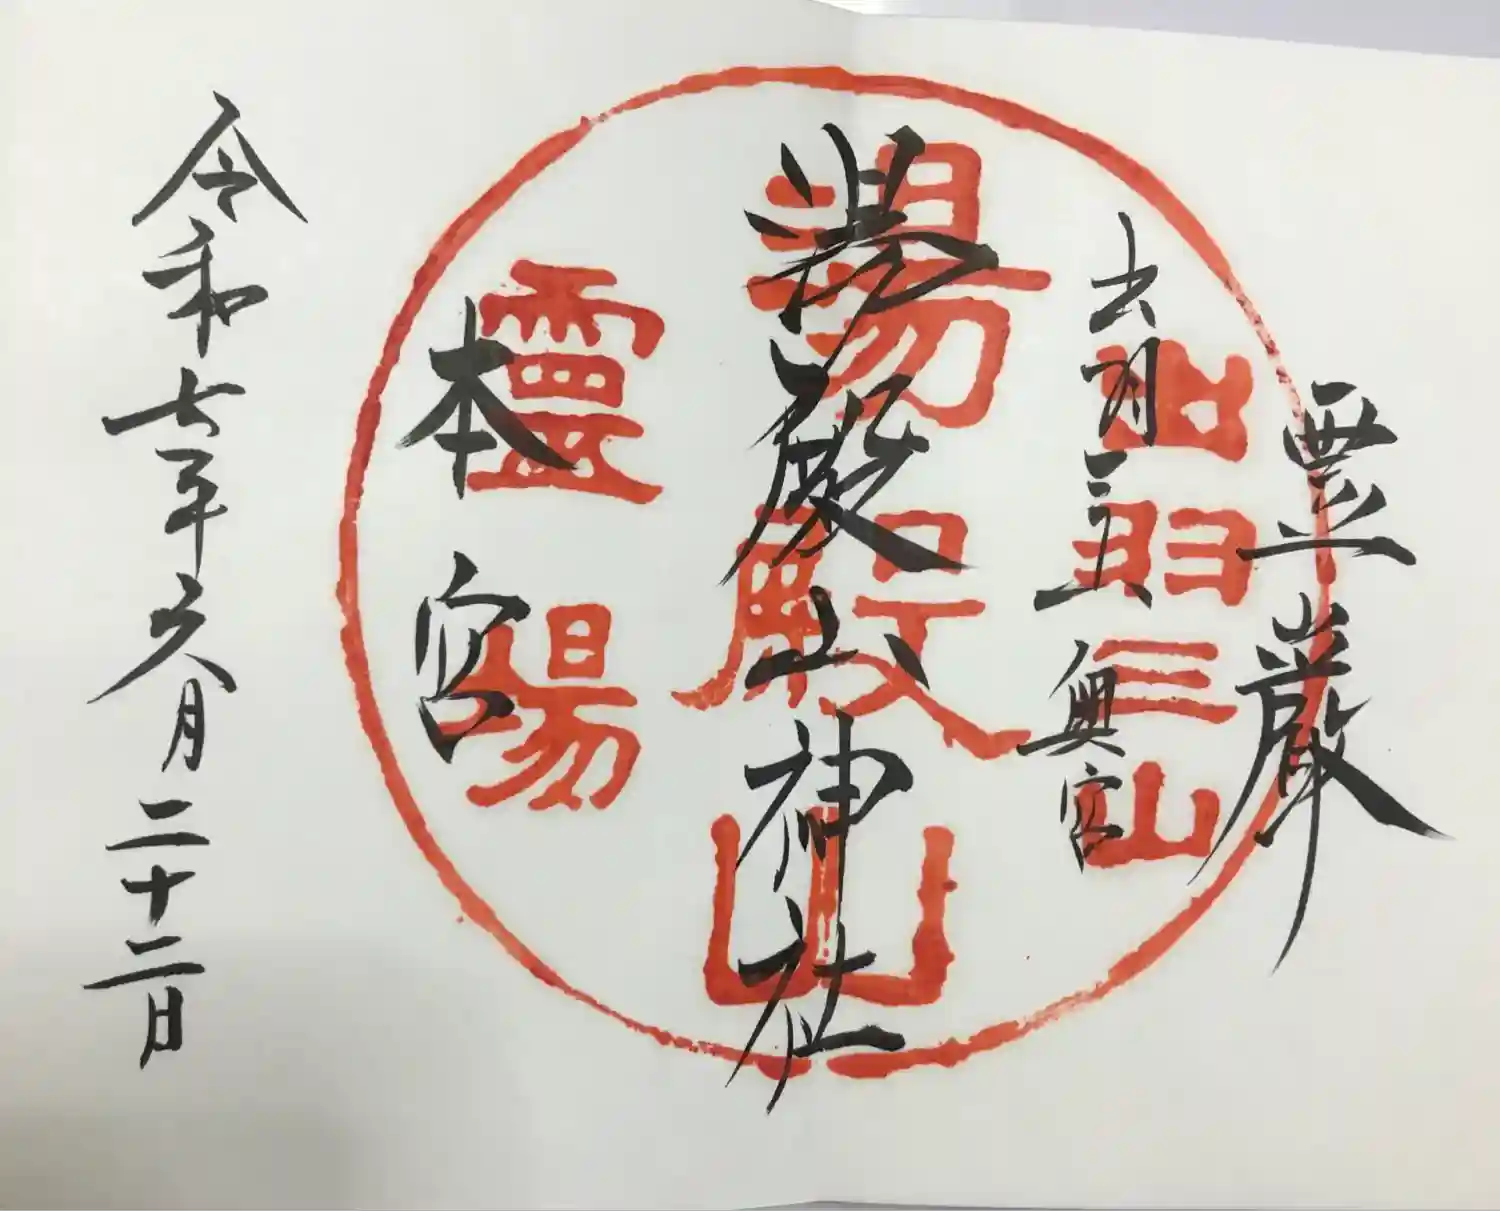 霊巌
出羽三山 奥宮
湯殿山神社
本宮
令和七年六月二十二日
出羽三山
湯殿山
霊場